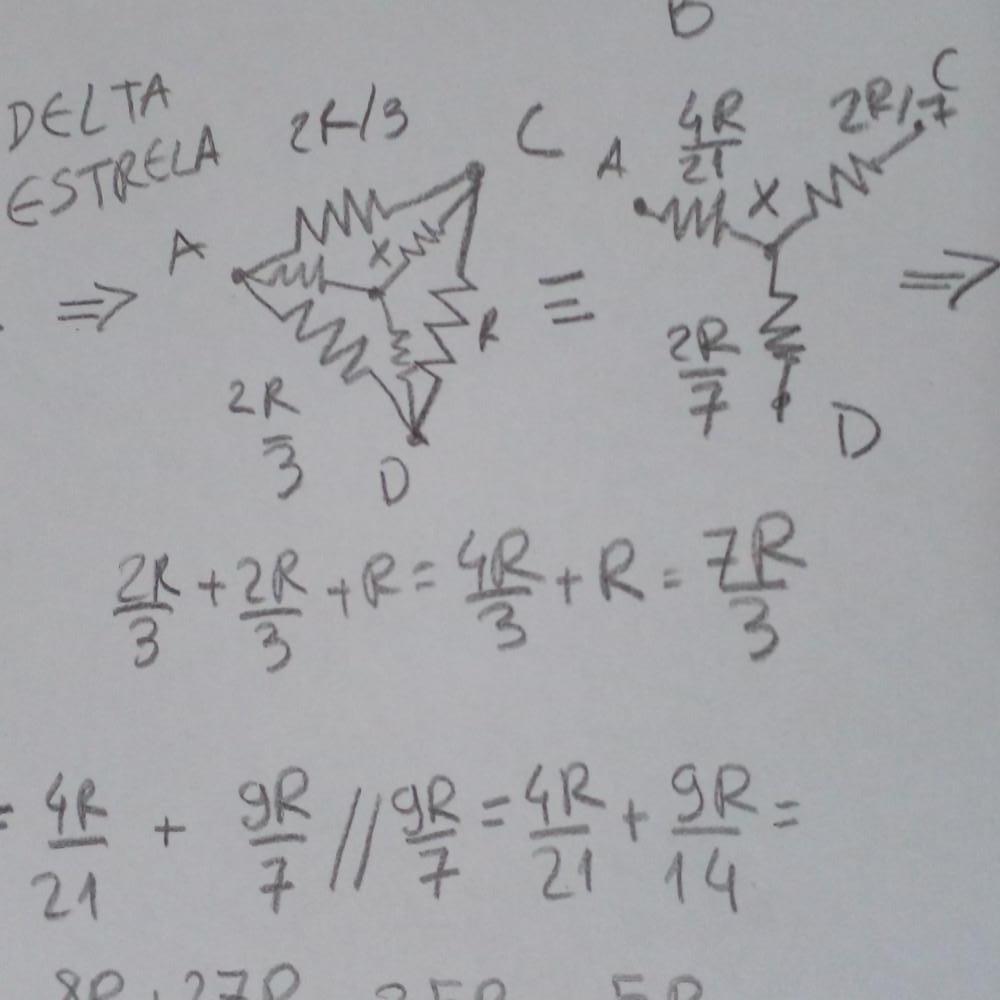 B
DELTA
ESTRELA
2R/3
C
A
X
R
2R/3
D
≡
A
4R/21
X
2R/7
C
2R/7
D
⇒
⇒
2R/3 + 2R/3 + R = 4R/3 + R = 7R/3
= 4R/21 + 9R/7 // 9R/7 = 4R/21 + 9R/14 =